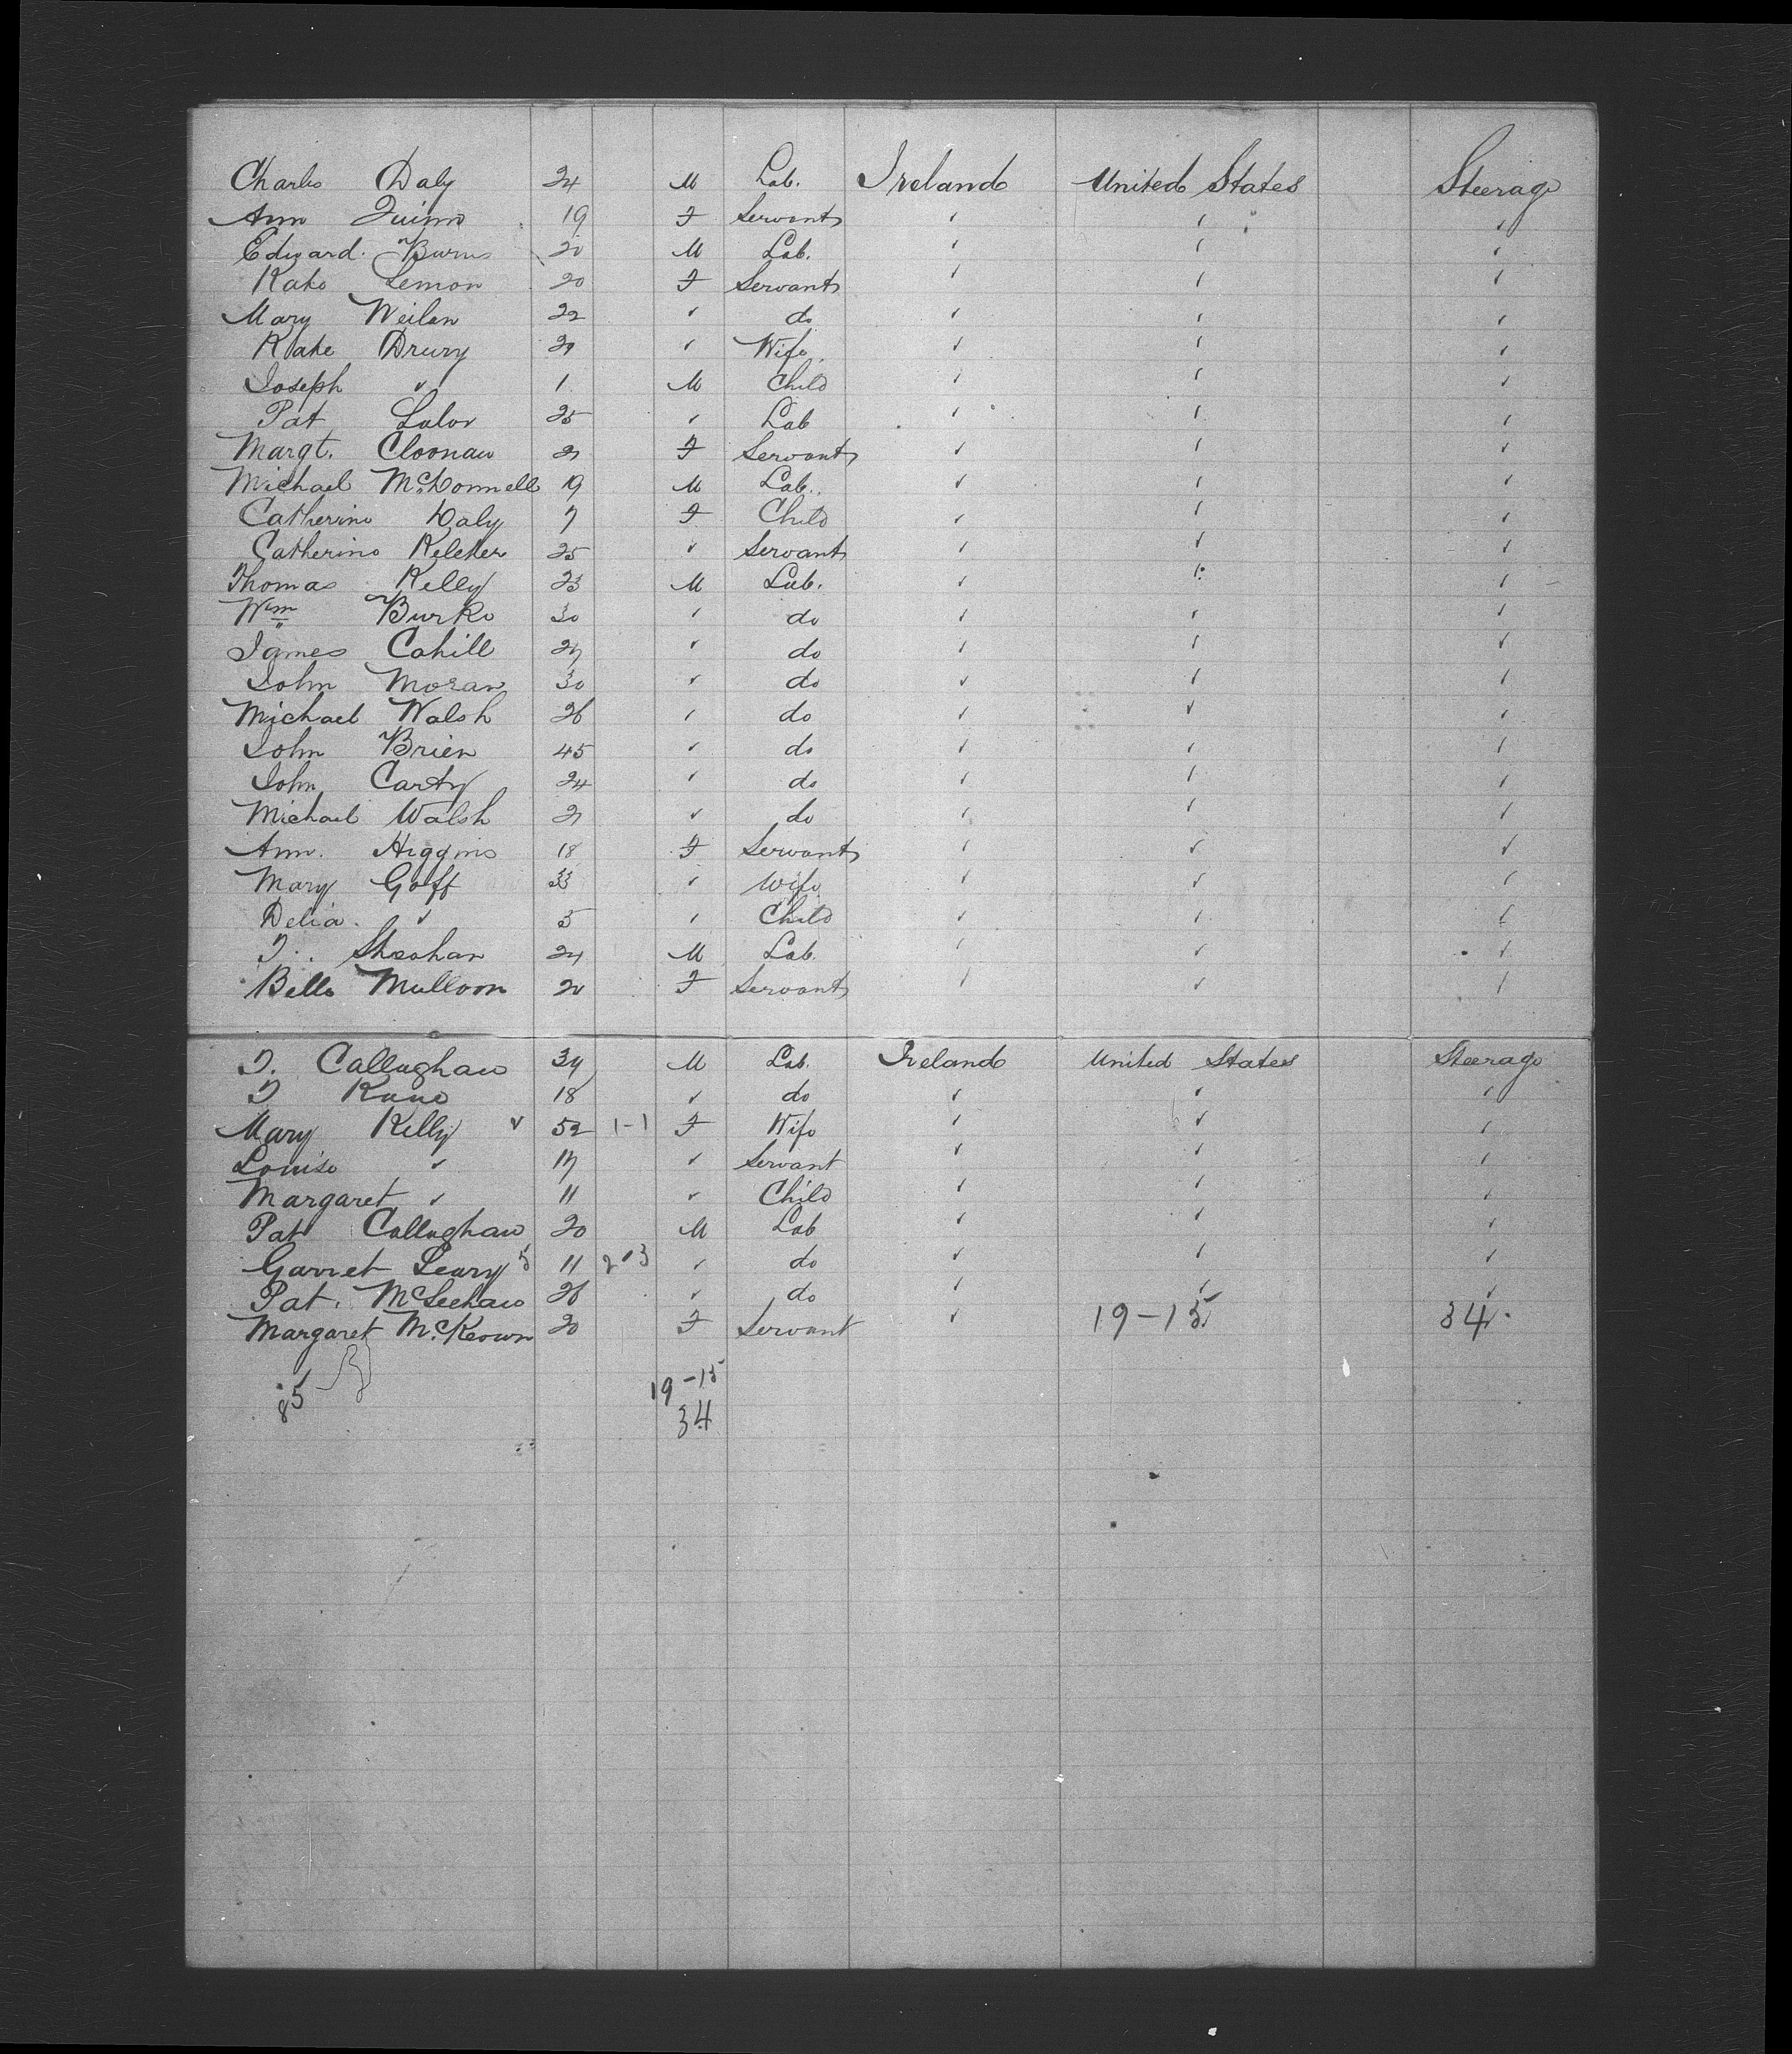 Charles Daly 24 M Lab. Ireland United States Steerage
Ann Quinn 19 F Servant ✓ ✓ ✓
Edward Burns 20 M Lab. ✓ ✓ ✓
Kate Lemon 20 F Servant ✓ ✓ ✓
Mary Weilan 22 ✓ do ✓ ✓ ✓
Kate Drury ✓ Wife ✓ ✓ ✓
Joseph ✓ 1 M Child ✓ ✓ ✓
Pat Lalor 25 ✓ Lab ✓ ✓ ✓
Margt. Cloonan 21 F Servant ✓ ✓ ✓
Michael McDonnell 19 M Lab. ✓ ✓ ✓
Catherine Daly 7 F Child ✓ ✓ ✓
Catherine Keleher 25 ✓ Servant ✓ ✓ ✓
Thomas Kelly 23 M Lab. ✓ ✓ ✓
Wm Burke 30 ✓ do ✓ ✓ ✓
James Cahill 27 ✓ do ✓ ✓ ✓
John Moran 30 ✓ do ✓ ✓ ✓
Michael Walsh 26 ✓ do ✓ ✓ ✓
John Brien 45 ✓ do ✓ ✓ ✓
John Carty 24 ✓ do ✓ ✓ ✓
Michael Walsh 21 ✓ do ✓ ✓ ✓
Ann. Higgins 18 F Servant ✓ ✓ ✓
Mary Goff 33 ✓ Wife ✓ ✓ ✓
Delia. ✓ 5 ✓ Child ✓ ✓ ✓
Sheahan 24 M Lab. ✓ ✓ ✓
Bella Mulloon 20 F Servant ✓ ✓ ✓
Callaghan 34 M Lab. Ireland United States Steerage
Kane 18 ✓ do ✓ ✓ ✓
Mary Kelly ✓ 52 1-1 F Wife ✓ ✓ ✓
Louise ✓ 17 ✓ Servant ✓ ✓ ✓
Margaret ✓ 11 ✓ Child ✓ ✓ ✓
Pat Callaghan 20 M Lab ✓ ✓ ✓
Garret Leary 5 11 ✓ do ✓ ✓ ✓
Pat. McLeehan 26 ✓ do ✓ ✓ ✓
Margaret McKeown 20 F Servant ✓ 19-15 34
85 19-15
34